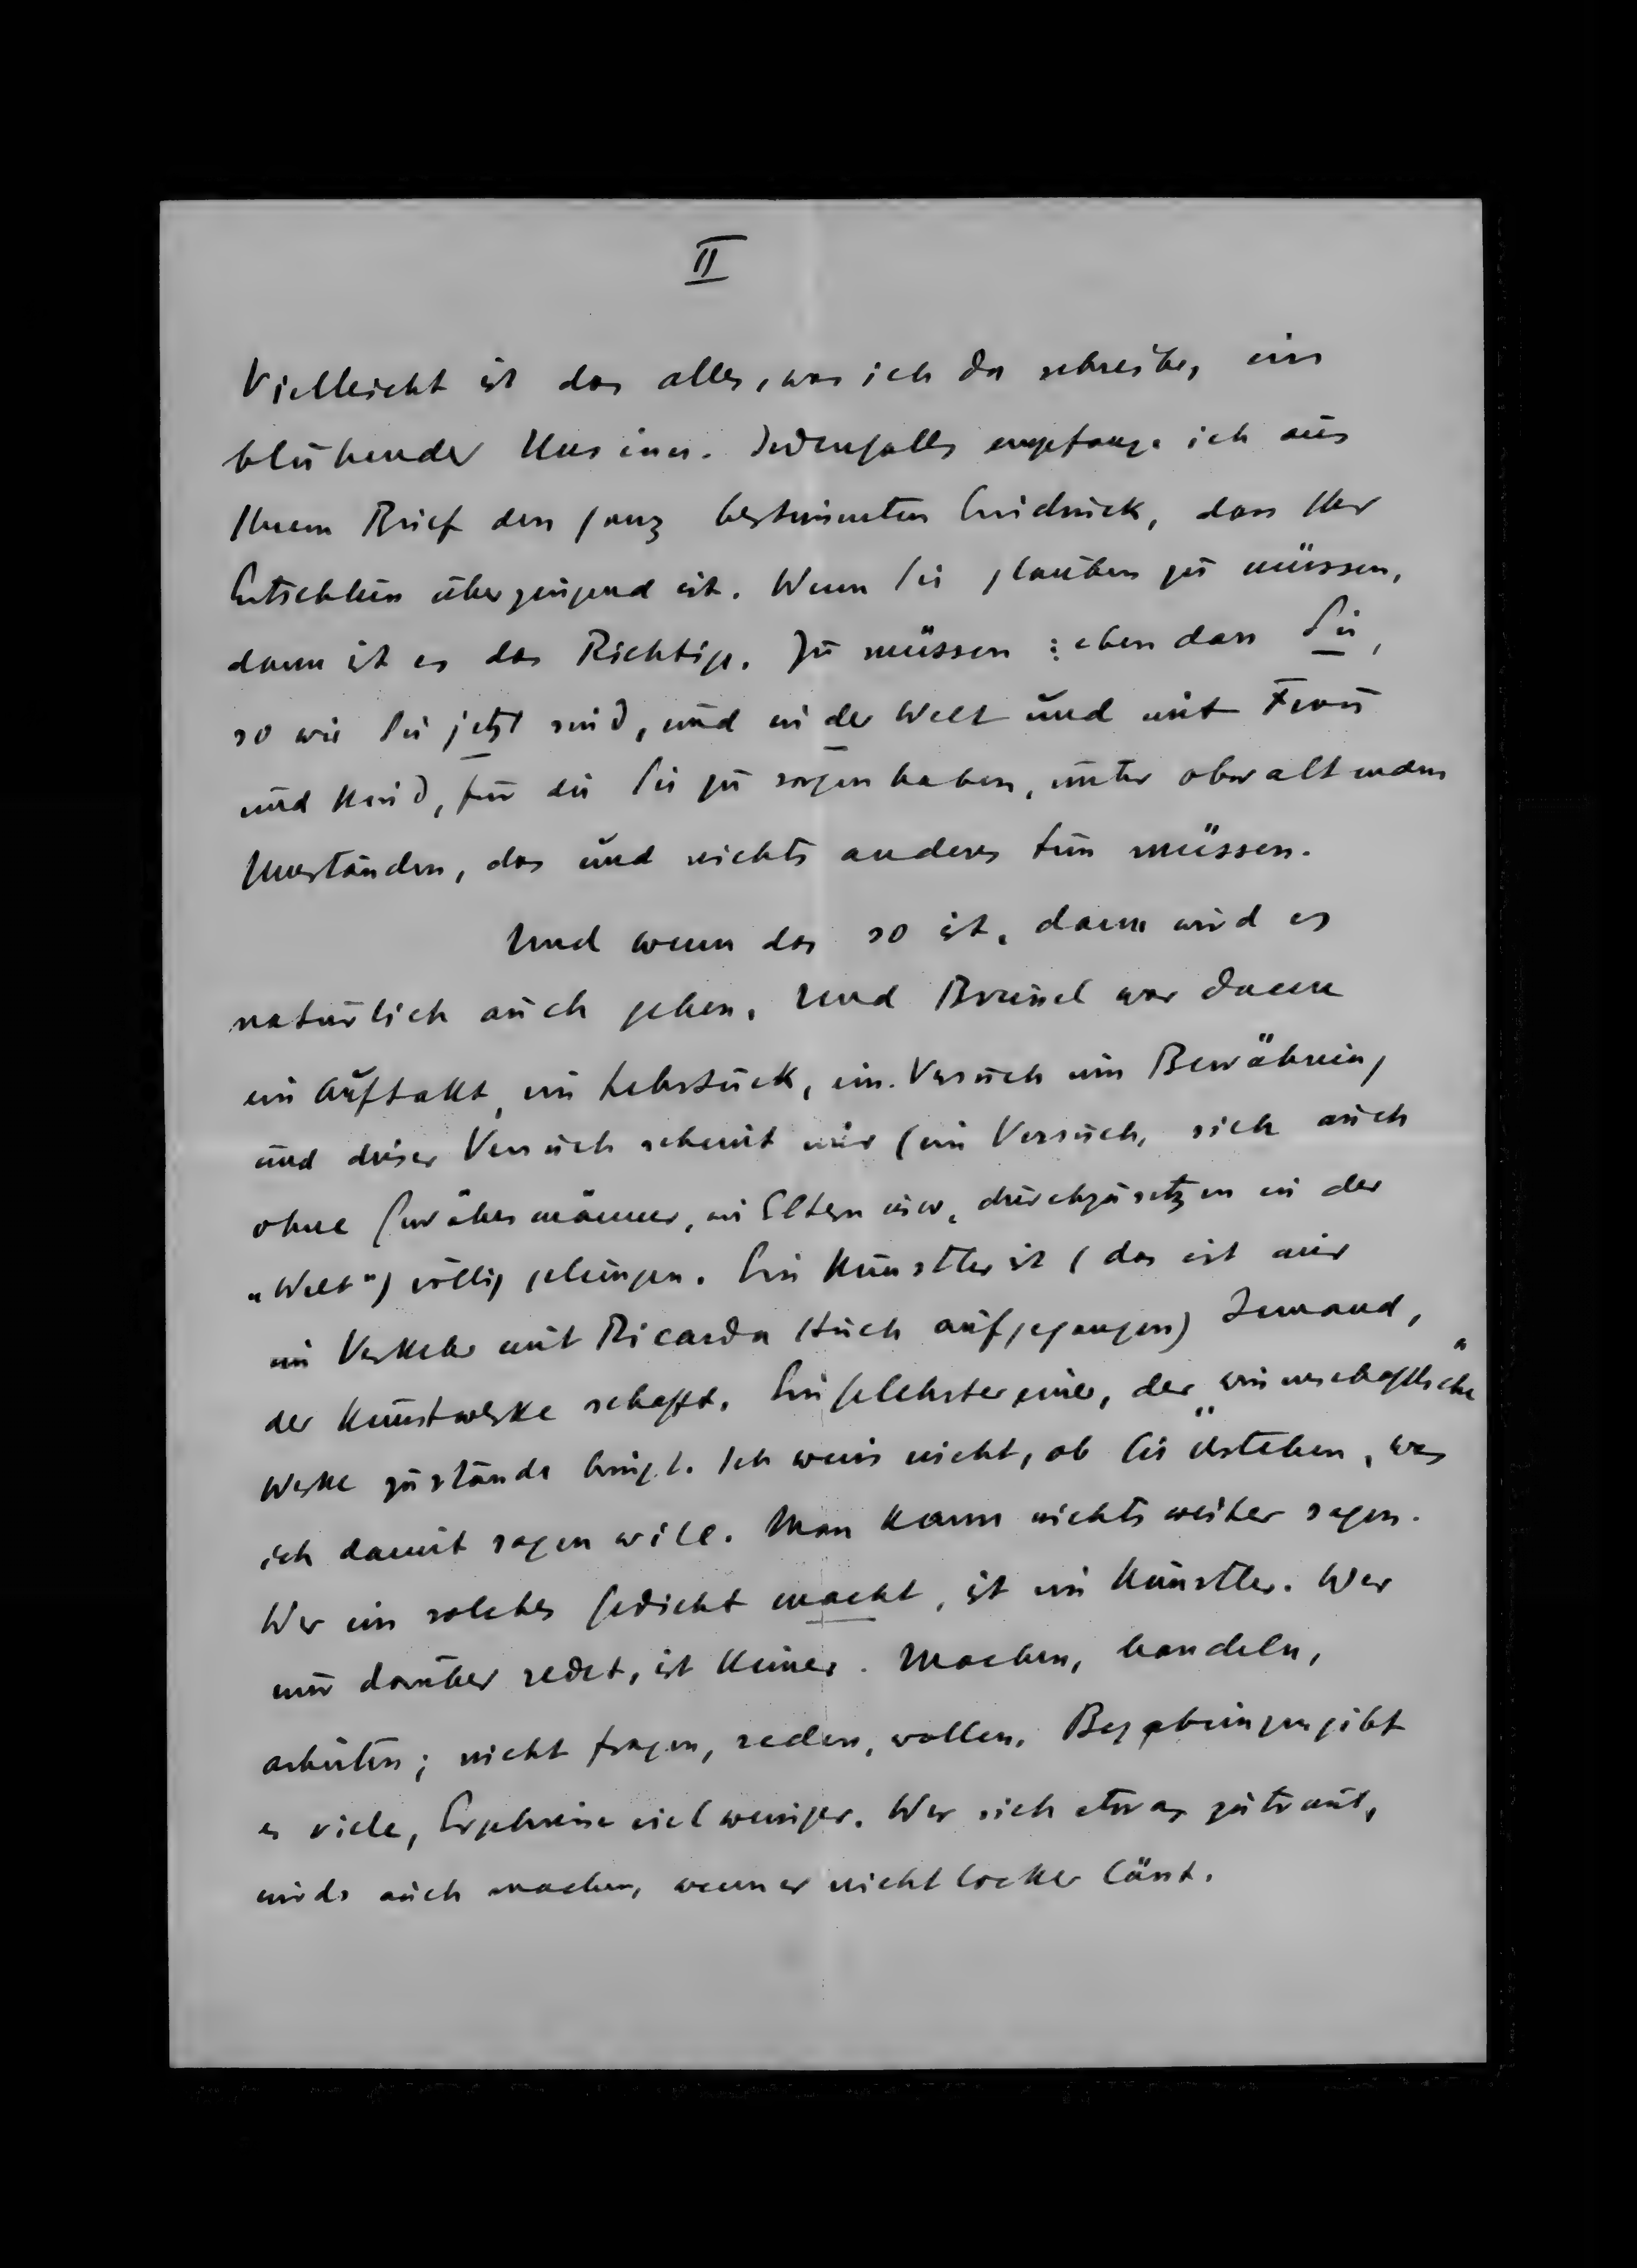 II
Vielleicht ist das alles, was ich da schreibe, ein
blühender Unsinn. Jedenfalls empfange ich aus
Ihrem Brief den ganz bestimmten Eindruck, dass Ihr
Entschluss überzeugend ist. Wenn Sie glauben zu müssen,
dann ist es das Richtige. Zu müssen: eben dass Sie,
so wie Sie jetzt sind, und in der Welt und mit Frau
und Kind, für die Sie zu sorgen haben, unter obwaltenden
Umständen, das und nichts anderes tun müssen.
Und wenn das so ist, dann wird es
natürlich auch gehen. Und Brüssel war dann
ein Auftakt, ein Lehrstück, ein Versuch um Bewährung
und dieser Versuch scheint mir (ein Versuch, sich auch
ohne Gewährsmänner, wie Eltern usw. durchzusetzen in der
„Welt") völlig gelungen. Ein Künstler ist (das ist mir
im Verkehr mit Ricarda Huch aufgegangen) Jemand,
der Kunstwerke schafft. Ein Gelehrter einer, der „wissenschaftliche"
Werke zustande bringt. Ich weiss nicht, ob Sie verstehen, was
ich damit sagen will. Man kann nichts weiter sagen.
Wer ein solches Gedicht macht, ist ein Künstler. Wer
nur darüber redet, ist keiner. Machen, handeln,
arbeiten; nicht fragen, reden, wollen. Begabungen gibt
es viele, Ergebnisse viel weniger. Wer sich etwas zutraut,
wirds auch machen, wenn er nicht locker lässt.